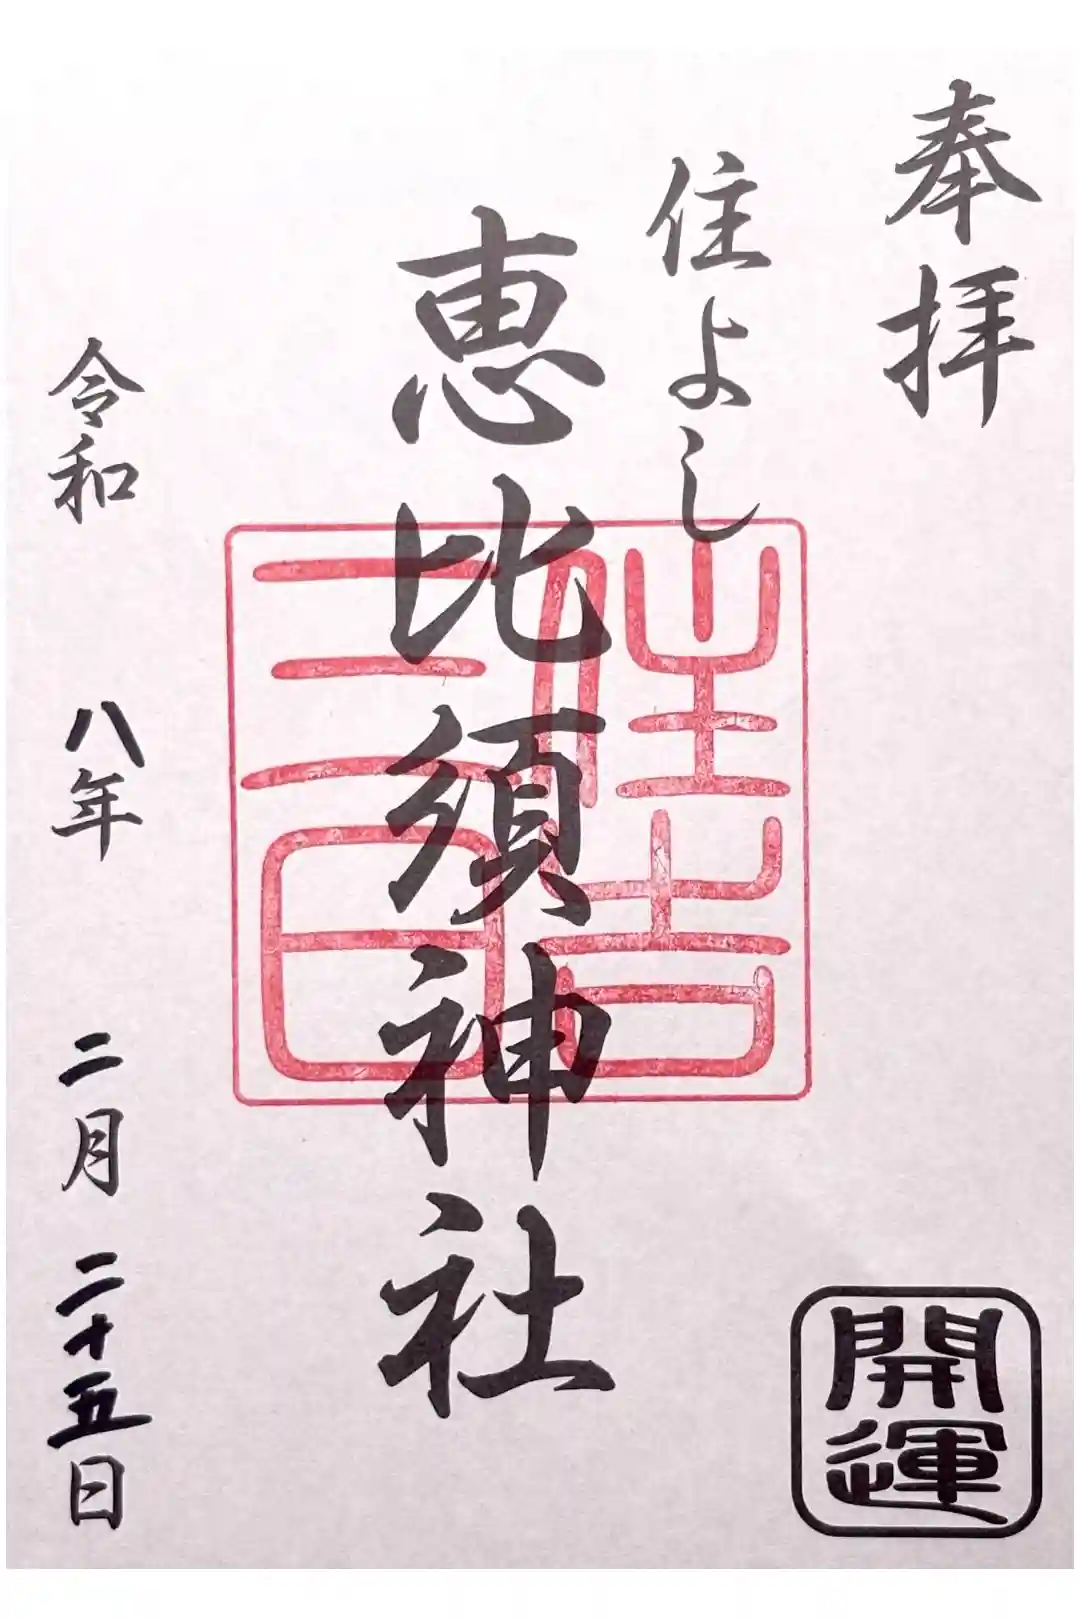 奉拝
開運
住よし
恵比須神社
住吉
三日
令和八年二月二十五日